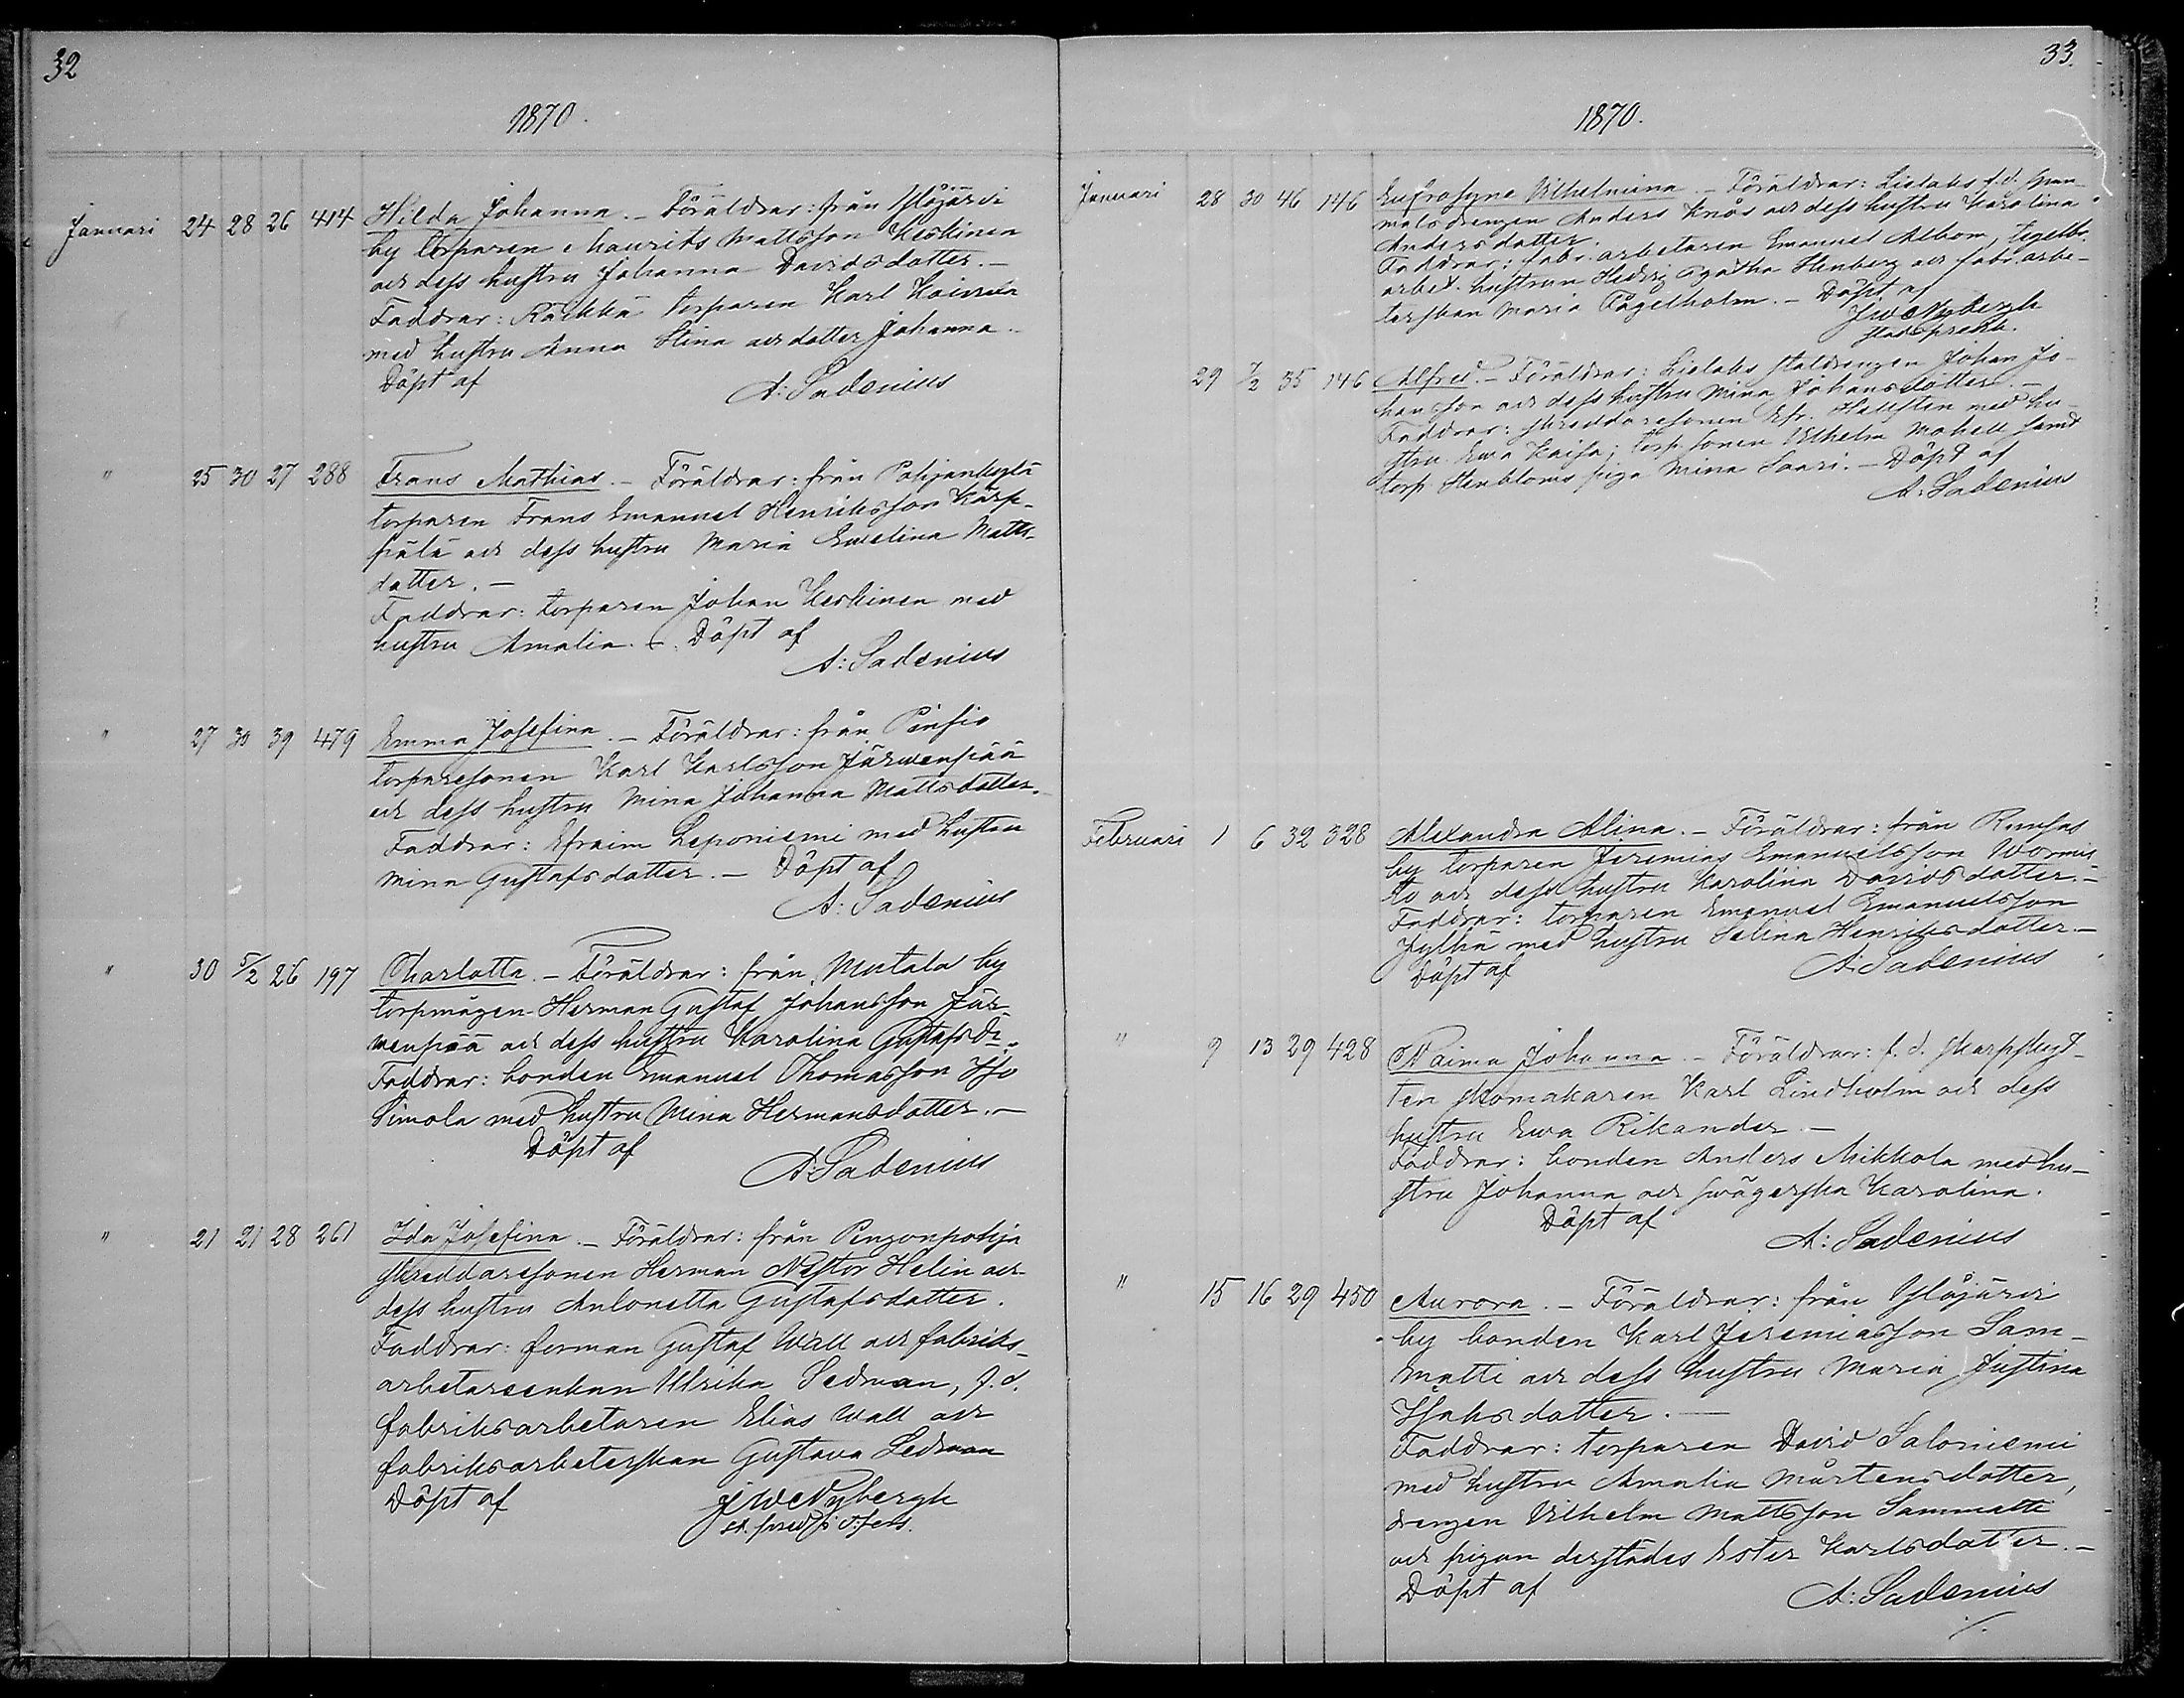 32
1870.
Januari 24 28 26 414 Hilda Johanna. – Föräldrar: från Ylöjärvi
by torparen Maurits Mattsson Keskinen
och dess hustru Johanna Davidsdotter. –
Faddrar: Räikkä torparen Karl
med hustru Anna Stina och dotter Johanna. –
Döpt af
A: Sadenius
" 25 30 27 288 Frans Mathias. – Föräldrar: från Pohjankylä
torparen Frans Emanuel Henriksson Kärp-
pälä och dess hustru Maria Ewelina Matts-
dotter. –
Faddrar: torparen Johan Keskinen med
hustru Amalia. – Döpt af
A: Sadenius
" 27 30 39 479 Emma Josefina. – Föräldrar: från Pinsio
torparesonen Karl Karlsson Järwenpää
och dess hustru Mina Johanna Mattsdotter.
Faddrar: Efraim Leponiemi med hustru
Mina Gustafsdotter. – Döpt af
A: Sadenius
" 30 5/2 26 197 Charlotta. – Föräldrar: från Mutala by
torpmågen Herman Gustaf Johansson Jär-
wenpää och dess hustru Karolina Gustafsdr.
Faddrar: bonden Emanuel Thomasson Iso
Simola med hustru Mina Hermansdotter. –
Döpt af
A: Sadenius
" 21 21 28 261 Ida Josefina. – Föräldrar: från Pengonpohja
skreddaresonen Herman Nestor Helin och
dess hustru Antonetta Gustafsdotter.
Faddrar: forman Gustaf Wall och fabriks-
arbetareenkan Ulrika Sedman, f.d.
fabriksarbetaren Elias Wall och
fabriksarbeterskan Gustava Sedman
Döpt af
J W Nybergh
33.
1870.
Januari 28 30 46 146 Eufrosyne Vilhelmina. – Föräldrar: Lielaks f.d. gam-
malsdrengen Anders Knås och dess hustru Karolina
Andersdotter.
Faddrar: fabr. arbetaren Emanuel Albom, tegelbr.
arbet. hustrun Hedvig Agatha Stenberg och fabr. arbe-
terskan Maria Fågelholm. – Döpt af
J W Nybergh
29 7/2 35 146 Alfred. – Föräldrar: Lielaks staldrengen Johan Jo-
hansson och dess hustru Mina Johansdotter. –
Faddrar: skreddaresonen Efr. Hellsten med hu-
stru Ewa Kaisa; torp. sonen Vilhelm Mahell samt
torp. Stenbloms piga Mina Saari. – Döpt af
A: Sadenius
Februari 1 6 32 328 Alexandra Alina. – Föräldrar: från Runsas
by torparen Jeremias Emanuelsson Wormis-
to och dess hustru Karolina Davidsdotter. –
Faddrar: torparen Emanuel Emanuelsson
Jylhä med hustru Selina Henriksdotter. –
Döpt af
A: Sadenius
" 9 13 29 428 Naima Johanna. – Föräldrar: f.d. skarpskyt-
ten skomakaren Karl Lindholm och dess
hustru Ewa Rikander. –
Faddrar: bonden Anders Mikkola med hu-
stru Johanna och svägerska Karolina.
Döpt af
A: Sadenius
" 15 16 29 450 Aurora. – Föräldrar: från Ylöjärvi
by bonden Karl Jeremiasson Sam-
matti och dess hustru Maria Justina
Isaksdotter. –
Faddrar: torparen David Saloniemi
med hustru Amalia Mårtensdotter,
drengen Vilhelm Mattsson Sammatti
och pigan derstädes Ester Karlsdotter. –
Döpt af
A: Sadenius